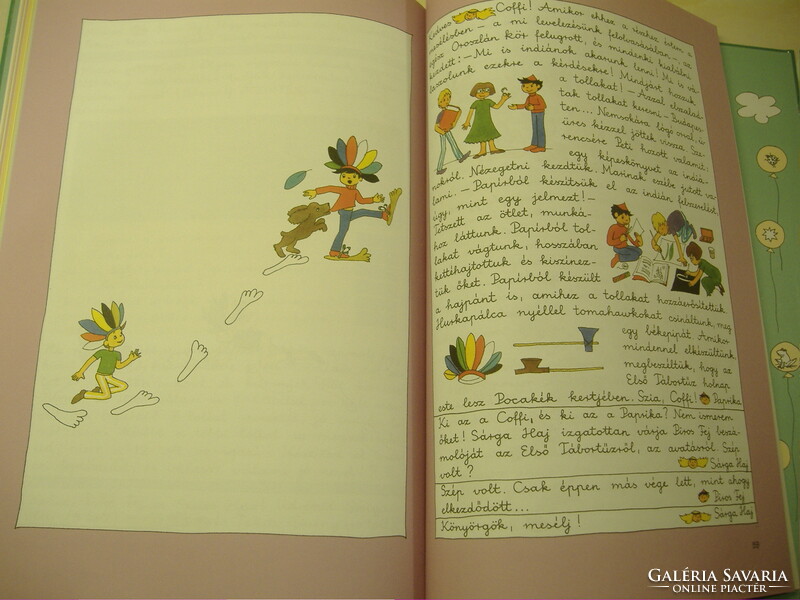 Kedves Coffi! Amikor ehhez a részhez értem a
mesélésben – a mi levelezésünk felolvasásában –, az
egész Oroszlán kör felugrott, és mindenki kiabálni
kezdett: – Mi is indiánok akarunk lenni! Mi is vá-
laszolunk ezekre a kérdésekre! Mindjárt hozzuk
a tollakat! – Azzal elszalad-
tak tollakat keresni – Budapes-
ten... Nemsokára lógó orral, ü-
üres kézzel jöttek vissza. Sze-
rencsére Peti hozott valamit:
egy képeskönyvet az indiá-
nokról. Nézegetni kezdtük. Marinak eszébe jutott va-
lami. – Papírból készítsük el az indián felszerelést,
úgy, mint egy jelmezt! –
Tetszett az ötlet, munká-
hoz láttunk. Papírból tol-
lakat vágtunk, hosszában
kettéhajtottuk és kiszínez-
tük őket. Papírból készült
a hajpánt is, amihez a tollakat hozzáerősítettük.
Hurkapálca nyéllel tomahawkokat csináltunk, meg
egy békepipát. Amikor
mindennel elkészültünk,
megbeszéltük, hogy az
Első Tábortűz holnap
este lesz Pocakék kertjében. Szia, Coffi! Paprika
Ki az a Coffi, és ki az a Paprika? Nem ismerem
őket! Sárga Haj izgatottan várja Piros Fej beszá-
molóját az Első Tábortűzről, az avatásról. Szép
volt? Sárga Haj
Szép volt. Csak éppen más vége lett, mint ahogy
elkezdődött... Piros Fej
Könyörgök, mesélj! Sárga Haj
59
GALÉRIA SAVARIA
ONLINE PIACTÉR